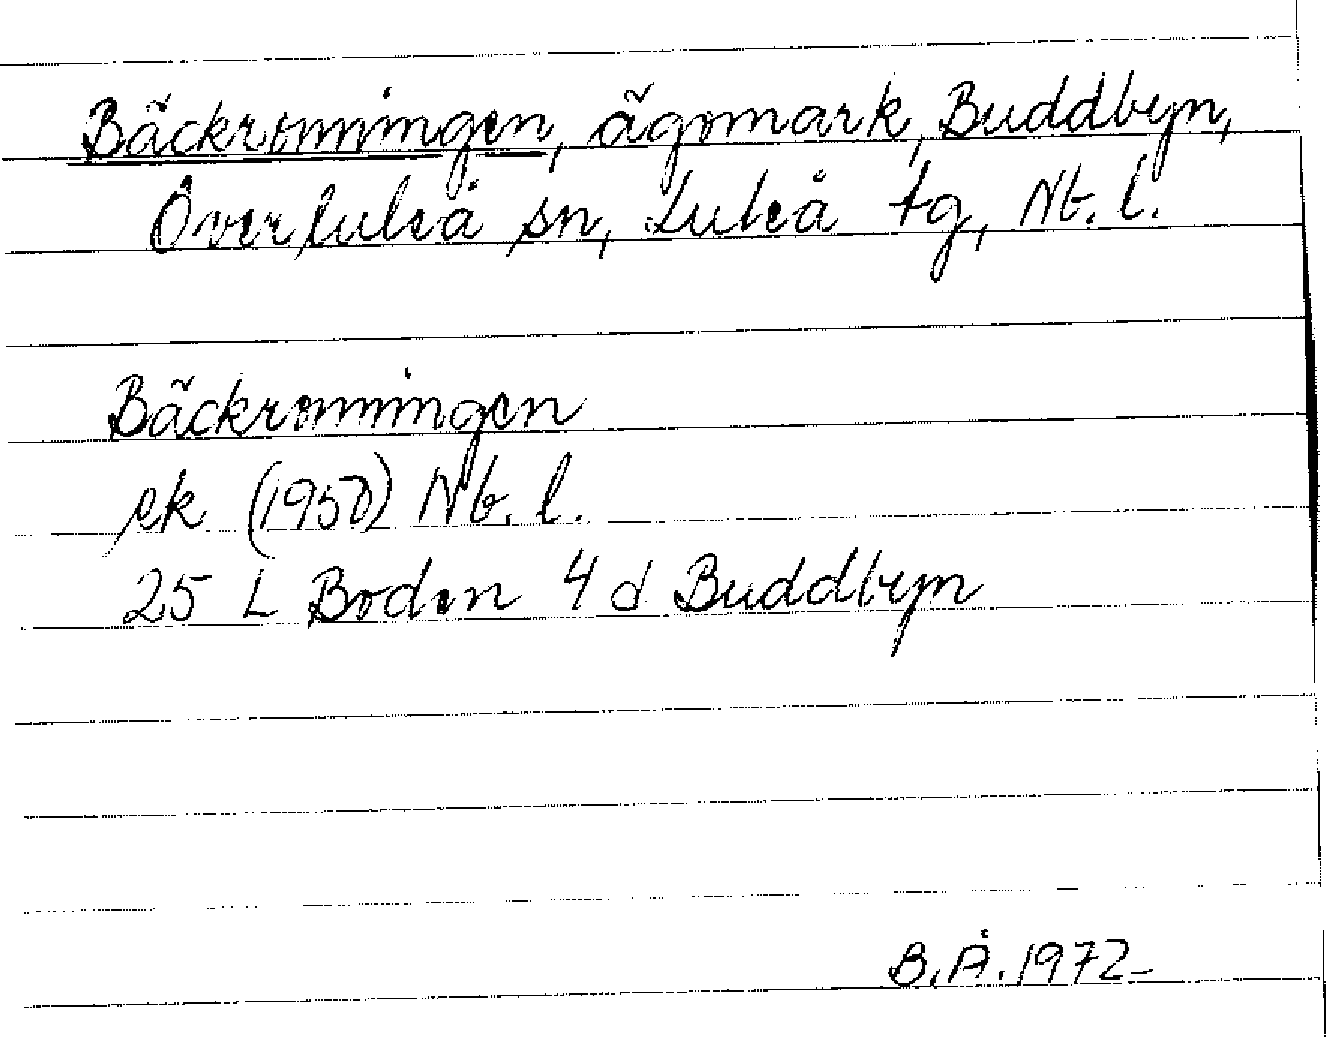 Bäckrönningen, ägomark, Buddbyn,
Överluleå sn, Luleå tg, Nb. l.
Bäckrönningen
ek (1950) Nb. l.
25 L Boden 4 d Buddbyn
B.Å. 1972